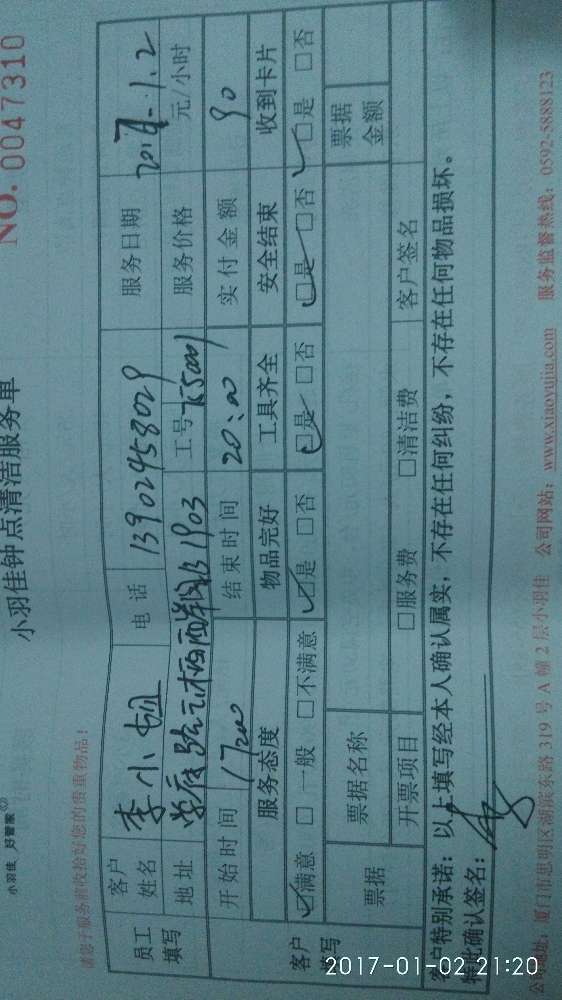 小羽佳 好管家
小羽佳钟点清洁服务单
NO. 0047310
请您于服务前收拾好您的贵重物品！
员工填写
客户姓名 李小姐 电话 13902458029 服务日期 2017.1.2
地址 1903 工号 服务价格 元/小时
开始时间 17:00 结束时间 20:00 实付金额 90
客户填写
服务态度 物品完好 工具齐全 安全结束 收到卡片
☑满意 □一般 □不满意 ☑是 □否 ☑是 □否 ☑是 □否 ☑是 □否
票据 票据名称 票据金额
开票项目 □服务费 □清洁费 客户签名
客户特别承诺：以上填写经本人确认属实，不存在任何纠纷，不存在任何物品损坏。
特此确认签名：
公司地址：厦门市思明区湖滨东路 319 号 A 幢 2 层小羽佳 公司网站：www.xiaoyujia.com 服务监督热线：0592-5888123
2017-01-02 21:20